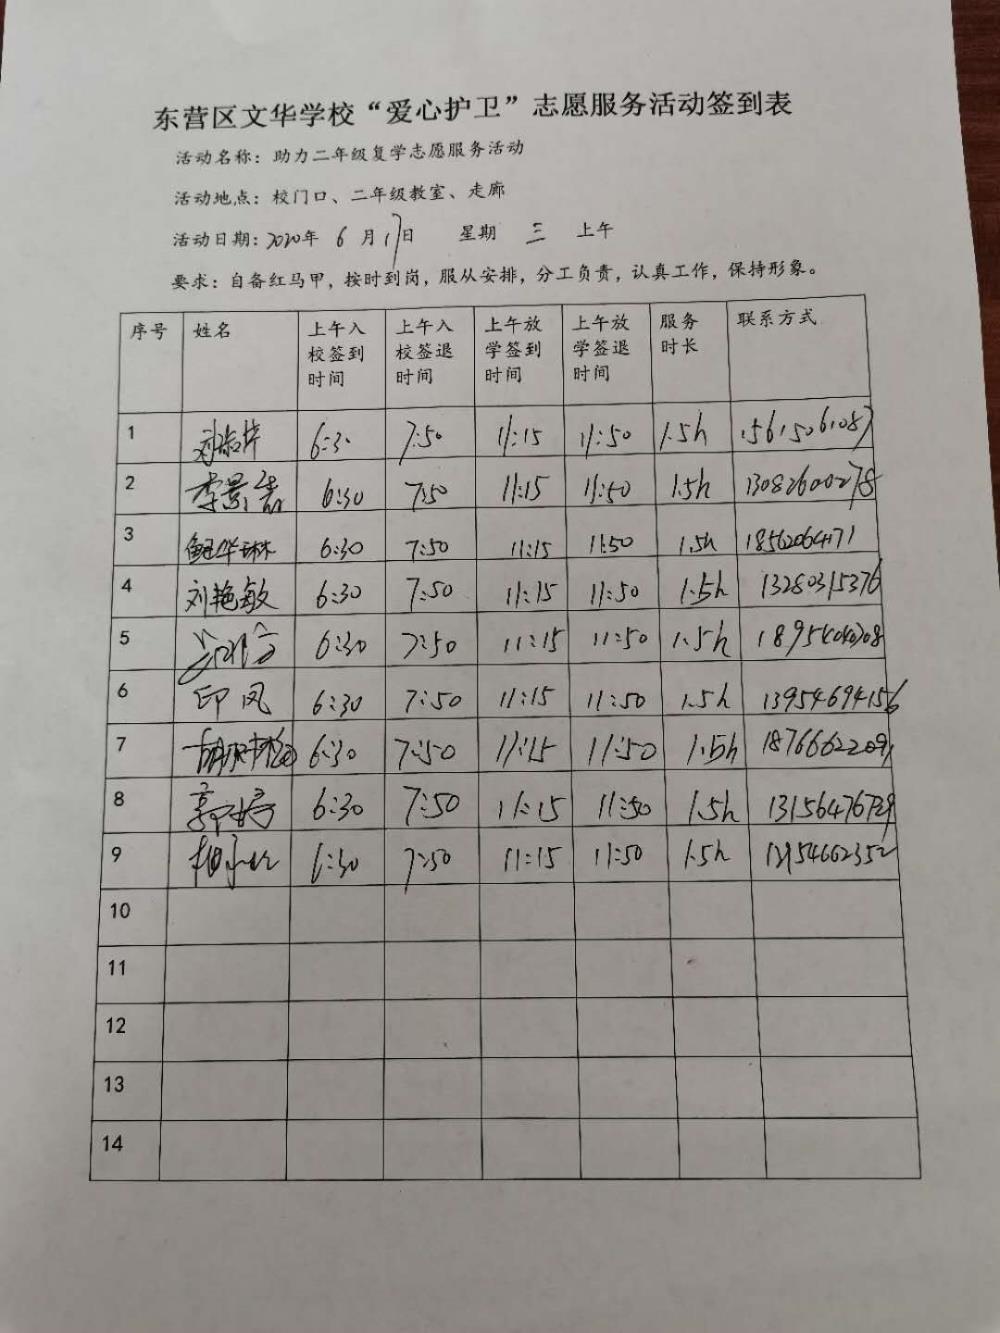 东营区文华学校“爱心护卫”志愿服务活动签到表
活动名称：助力二年级复学志愿服务活动
活动地点：校门口、二年级教室、走廊
活动日期：2020年 6 月 17日 星期 三 上午
要求：自备红马甲，按时到岗，服从安排，分工负责，认真工作，保持形象。
序号 姓名 上午入校签到时间 上午入校签退时间 上午放学签到时间 上午放学签退时间 服务时长 联系方式
1 6:30 7:50 11:15 11:50 1.5h
2 6:30 7:50 11:15 11:50 1.5h 13082600278
3 6:30 7:50 11:15 11:50 1.5h
4 刘艳敏 6:30 7:50 11:15 11:50 1.5h 13280315376
5 6:30 7:50 11:15 11:50 1.5h
6 印凤 6:30 7:50 11:15 11:50 1.5h 13954694156
7 6:30 7:50 11:15 11:50 1.5h 18766622091
8 6:30 7:50 11:15 11:50 1.5h
9 6:30 7:50 11:15 11:50 1.5h
10
11
12
13
14